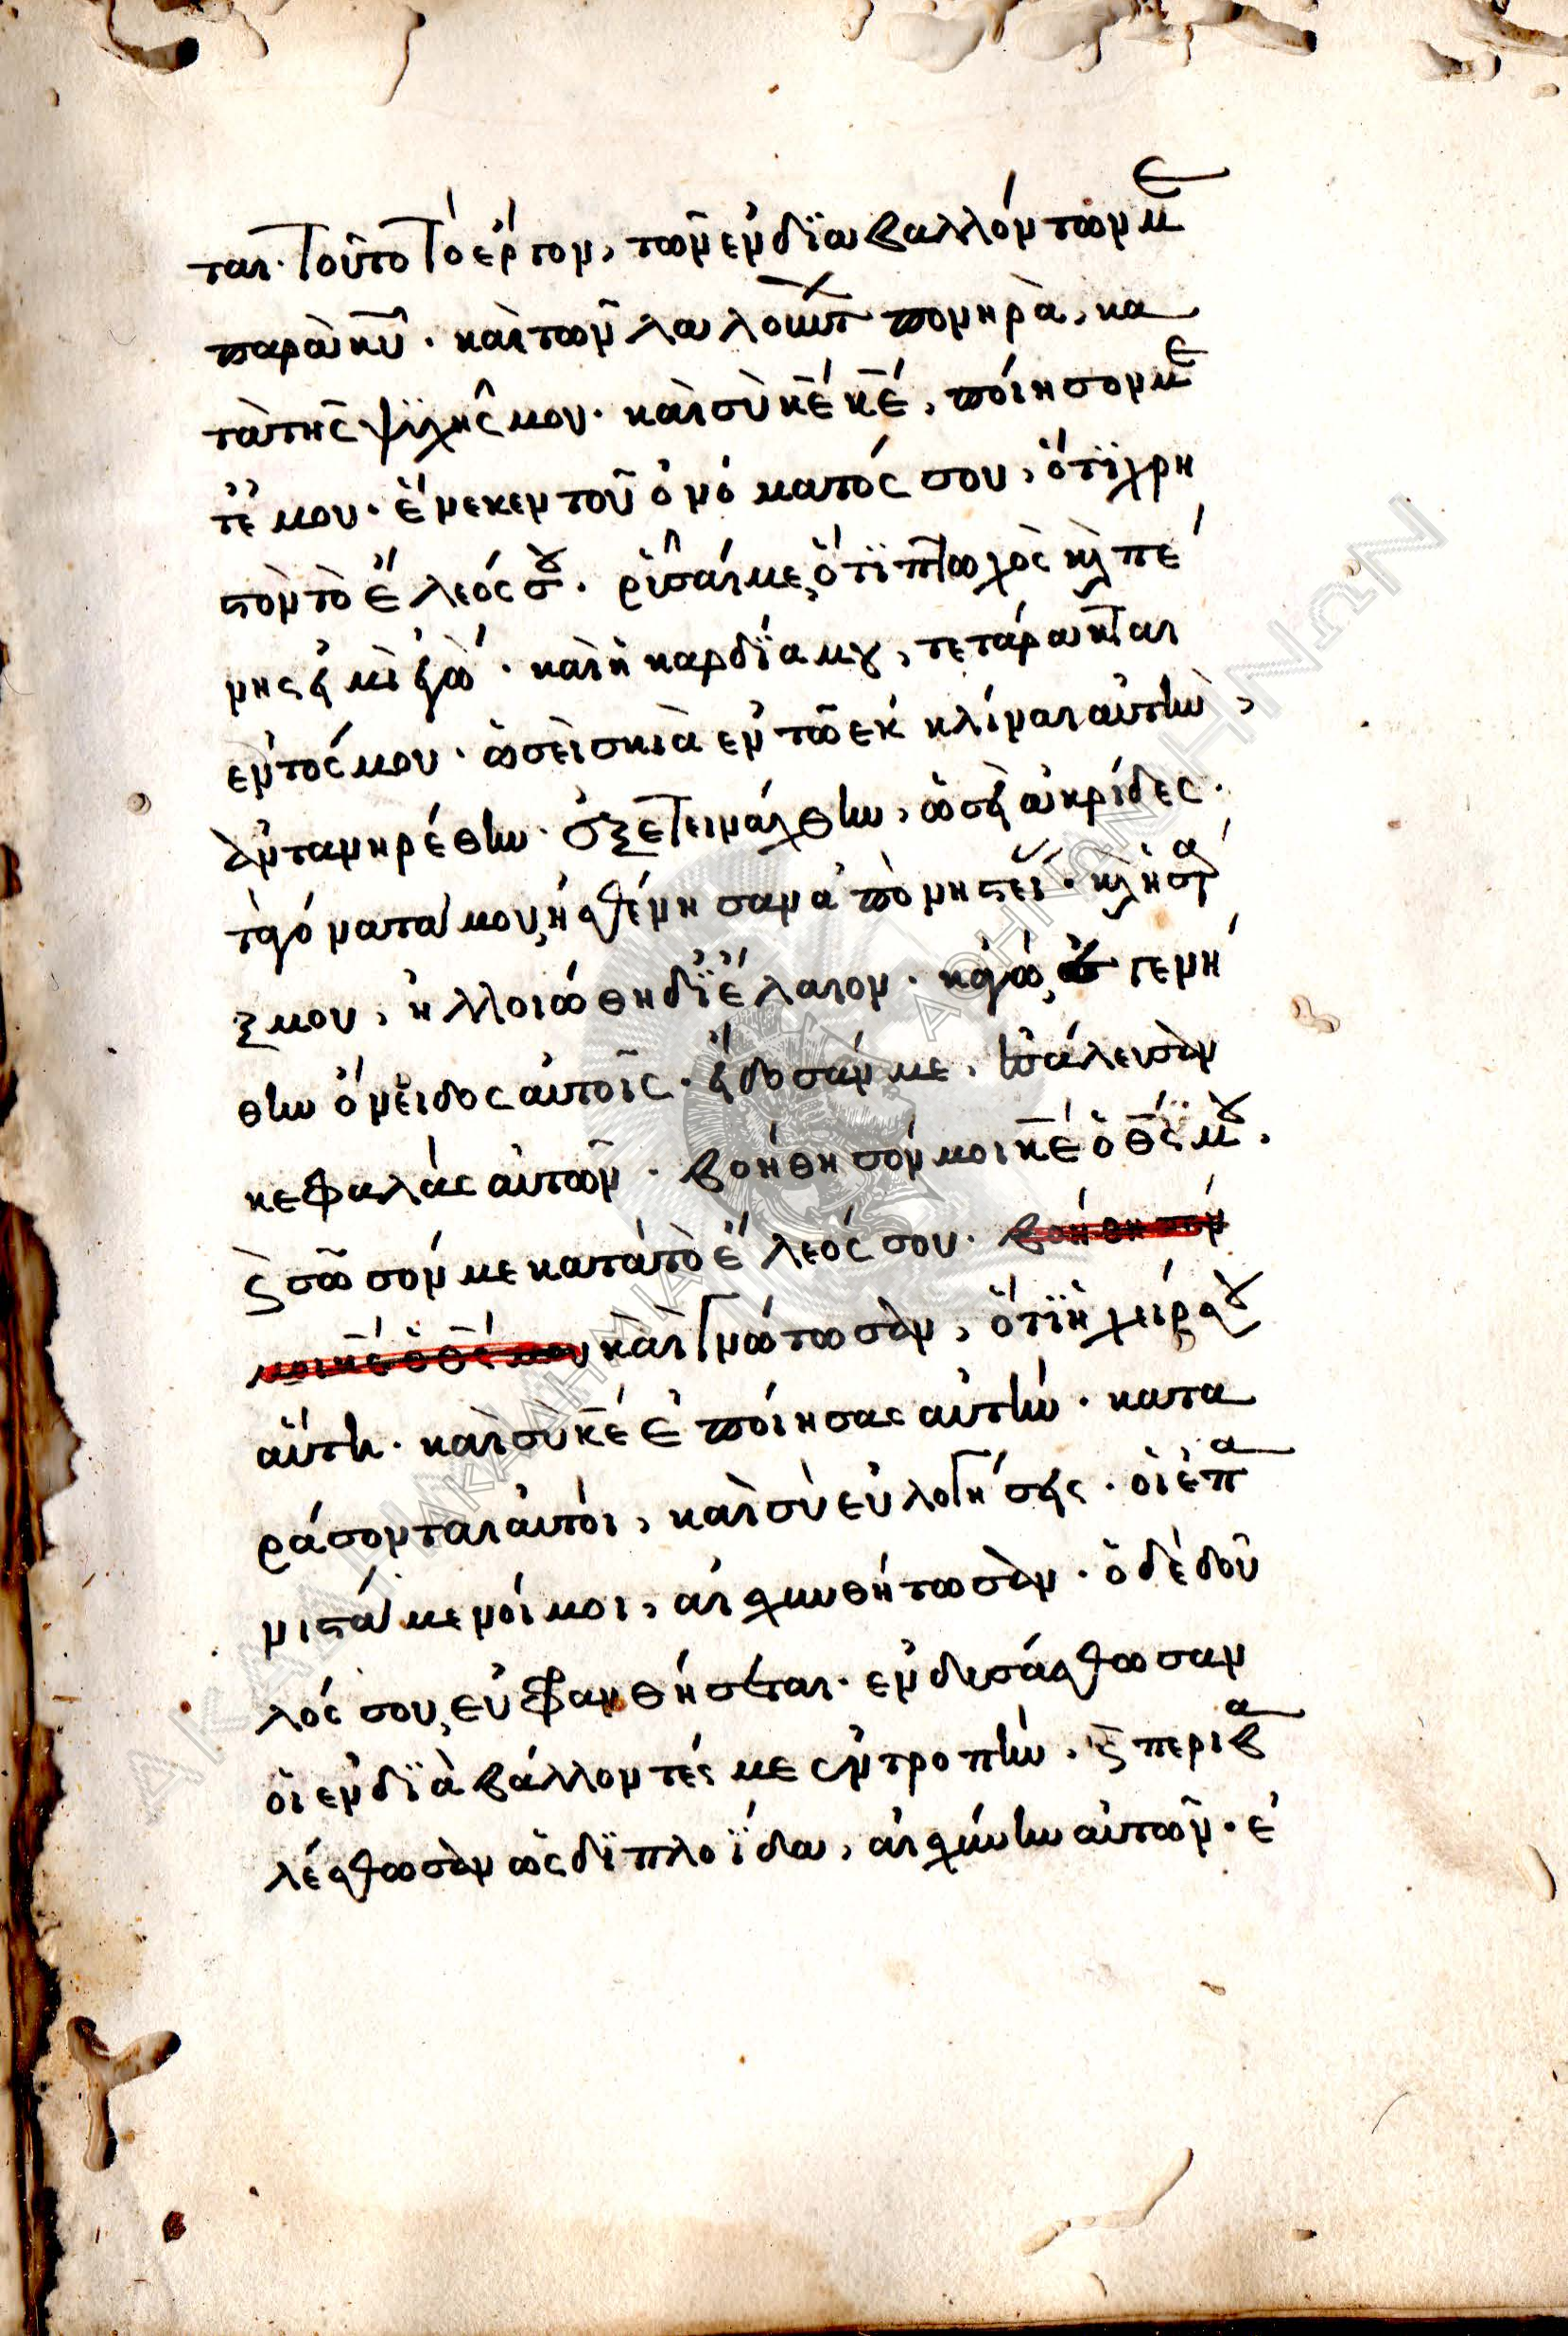 ται· τοῦτο τὸ ἔργον, τῶν ἐνδϊαβαλλόντων με
παρὰ κυ̅· καὶ τῶν λαλούντ πονηρὰ, κα
τὰ τῆς ψϋχῆς μου· καὶ σὺ κε̅ κε̅, ποίησον με
τ' ἐμου· ἕνεκεν τοῦ ὀνόματός σου, ὅτϊ χρη
στὸν τὸ ἔλεός σου. ῥῦσαί με, ὅτϊ πτωχὸς κὶ πέ
νης εἰμὶ ἐγὼ· καὶ ἡ καρδΐα μου, τετάρακται
ἐντός μου· ὡσεὶ σκιὰ ἐν τῶ ἐκκλίναι αὐτὴν,
ἀντανηρέθην· ἐξετεινάχθην, ὡσεὶ ἀκρίδες·
τὰ γόνατα μου, ἠσθένησαν ἀπὸ νηστεί· κὶ ἡ σὰρ
ξ μου, ἠλλοιώθη δϊ' ἔλαιον· κἀγὼ, ἐγενή
θην ὄνειδος αὐτοῖς· εἴδοσάν με, ἐσάλευσαν
κεφαλὰς αὐτῶν· βοήθησόν μοι κε̅ ὁ θς̅ μου.
ϗ σῶσόν με κατὰ τὸ ἔλεός σου· βοήθησόν
μοι κε̅ ὁ θς̅ μου καὶ γνώτωσαν, ὅτϊ ἡ χείρ σου
αὕτη· καὶ σὺ κε̅ ἐποίησας αὐτὴν· κατα
ράσονται αὐτοὶ, καὶ σὺ εὐλογήσεις· οἱ ἐπα
νιστάμενοί μοι, αἰσχυνθήτωσαν· ὁ δὲ δοῦ
λός σου, εὐφανθήσεται· ἐνδυσάσθωσαν
οἱ ἐνδϊαβάλλοντές με ἐντροπὴν· ϗ περιβα
λέσθωσαν ὡς δϊπλοΐδα, αἰσχύνην αὐτῶν· ἐ